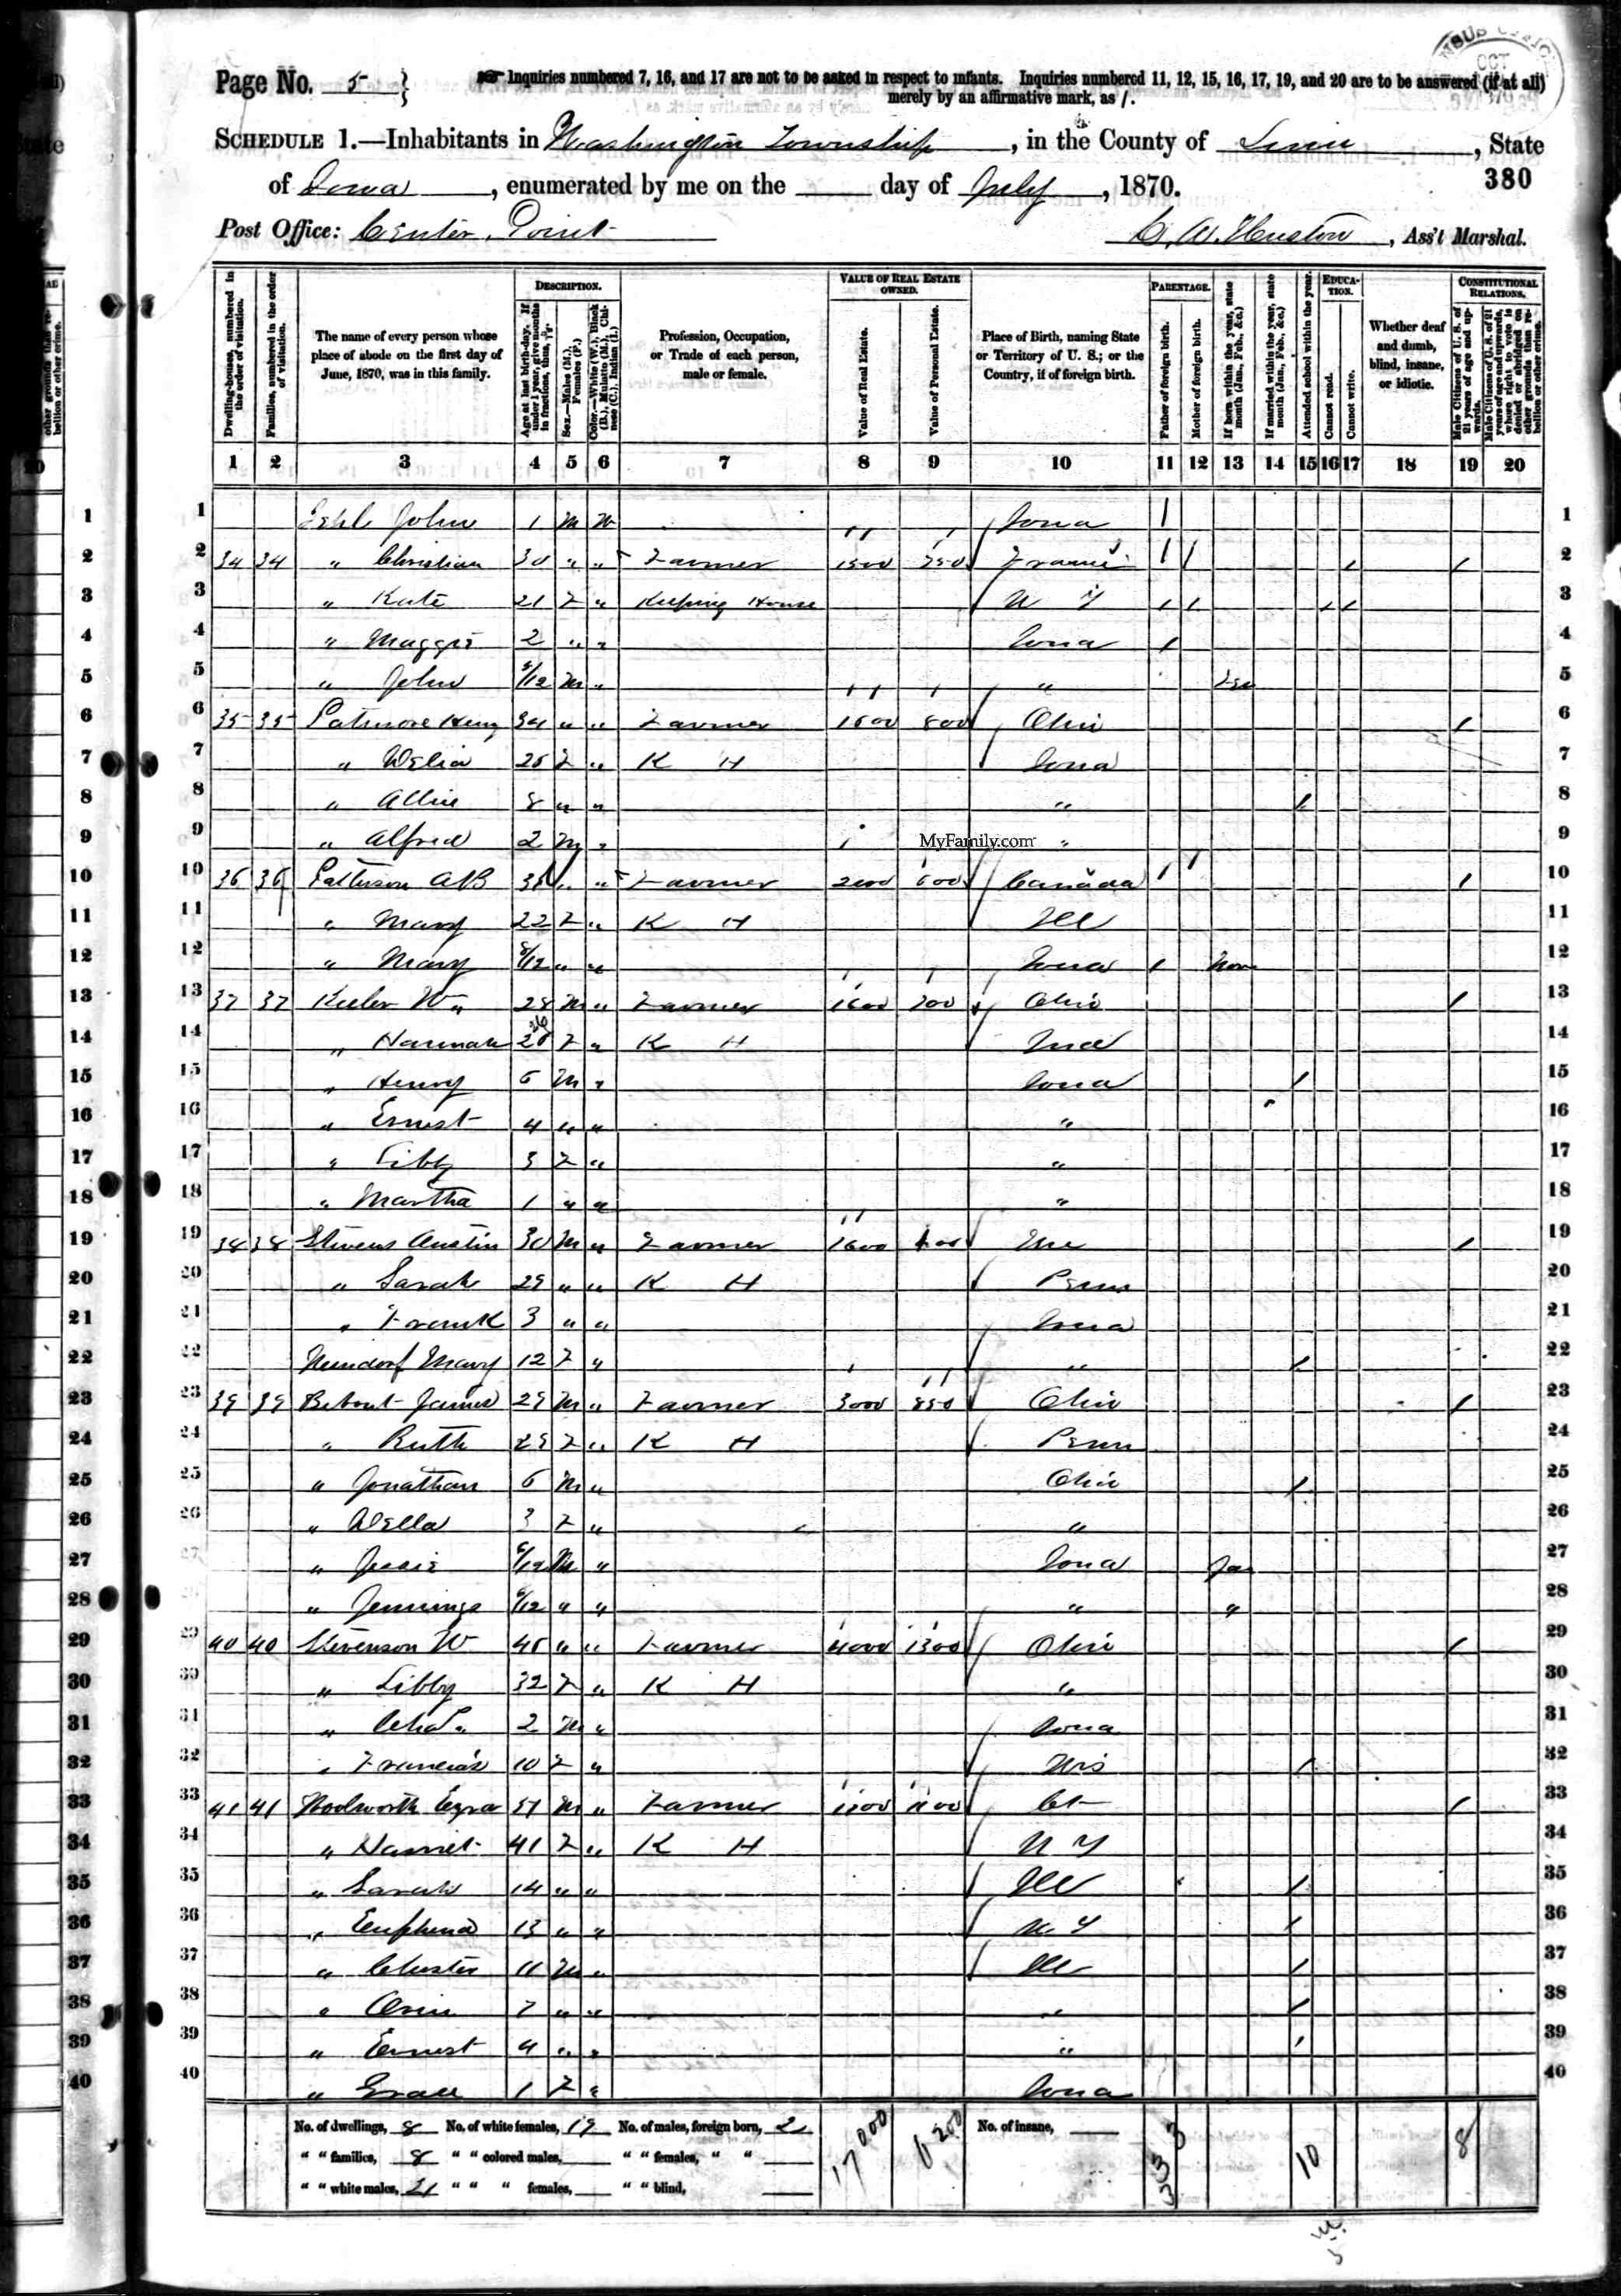 Page No. 5
Inquiries numbered 7, 16, and 17 are not to be asked in respect to infants. Inquiries numbered 11, 12, 15, 16, 17, 19, and 20 are to be answered (if at all)
merely by an affirmative mark, as /.
SCHEDULE 1.—Inhabitants in Washington Township, in the County of Linn, State
of Iowa, enumerated by me on the day of July, 1870.
380
Post Office: Center Point
Ass't Marshal.
Dwelling-houses, numbered in the order of visitation.
Families, numbered in the order of visitation.
The name of every person whose place of abode on the first day of June, 1870, was in this family.
DESCRIPTION.
Age at last birth-day. If under 1 year, give months in fractions, thus, 3/12.
Sex.—Males (M.), Females (F.)
Color.—White (W.), Black (B.), Mulatto (M.), Chinese (C.), Indian (I.)
Profession, Occupation, or Trade of each person, male or female.
VALUE OF REAL ESTATE OWNED.
Value of Real Estate.
Value of Personal Estate.
Place of Birth, naming State or Territory of U. S.; or the Country, if of foreign birth.
PARENTAGE.
Father of foreign birth.
Mother of foreign birth.
If born within the year, state month (Jan., Feb., &c.)
If married within the year, state month (Jan., Feb., &c.)
Attended school within the year.
EDUCATION.
Cannot read.
Cannot write.
Whether deaf and dumb, blind, insane, or idiotic.
CONSTITUTIONAL RELATIONS.
Male Citizens of U. S. of 21 years of age and upwards.
Male Citizens of U. S. of 21 years of age and upwards, whose right to vote is denied or abridged on other grounds than rebellion or other crime.
1 2 3 4 5 6 7 8 9 10 11 12 13 14 15 16 17 18 19 20
1 John 1 M W Iowa / 1
2 34 34 " Christian 30 " " Farmer 1500 750 France / / / / 2
3 " Kate 21 F " Keeping House N Y / / / / 3
4 " Maggie 2 " " Iowa / 4
5 " John M " " 5
6 35 35 34 " " Farmer 1600 800 Ohio / 6
7 " Delia F " K H Iowa 7
8 " Allie 8 " " " / 8
9 " Alfred 2 M " " 9
MyFamily.com
10 36 36 Patterson A B " " Farmer 2000 600 Canada / / / 10
11 " Mary 22 F " K H Ill 11
12 " Mary 8/12 " " Iowa / Nov 12
13 37 37 Wm 28 M " Farmer 1600 700 Ohio / 13
14 " Hannah F " K H Ind 14
15 " Henry 6 M " Iowa / 15
16 " Ernest 4 " " " 16
17 " Libby 3 F " " 17
18 " Martha 1 " " " 18
19 38 38 Stevens Austin 30 M " Farmer 1600 / 19
20 " Sarah 29 " " K H Penn 20
21 " Frank 3 " " Iowa 21
22 Mary 12 F " " / 22
23 39 39 Bebout James 29 M " Farmer 3000 850 Ohio / 23
24 " Ruth 29 F " K H Penn 24
25 " Jonathan 6 M " Ohio / 25
26 " Della 3 F " " 26
27 " Jessie 6/12 M " Iowa Jan 27
28 " Jennings 6/12 " " " " 28
29 40 40 Stevenson W 45 " " Farmer 4000 1300 Ohio / 29
30 " Libby 32 F " K H " 30
31 " Chas 2 M " Iowa 31
32 " Francis 10 F " Wis / 32
33 41 41 Woolworth Ezra 51 M " Farmer Ct / 33
34 " Harriet 41 F " K H N Y 34
35 " Sarah 14 " " Ill / 35
36 " 13 " " N Y / 36
37 " Chester 11 M " Ill / 37
38 " Orin 7 " " " / 38
39 " Ernest 4 " " " / 39
40 " Grace 1 F " Iowa 40
No. of dwellings, 8 No. of white females, 19 No. of males, foreign born, 2 No. of insane,
" " families, 8 " " colored males, " " females, " "
" " white males, 21 " " " females, " " blind,
17000 6200 10 8